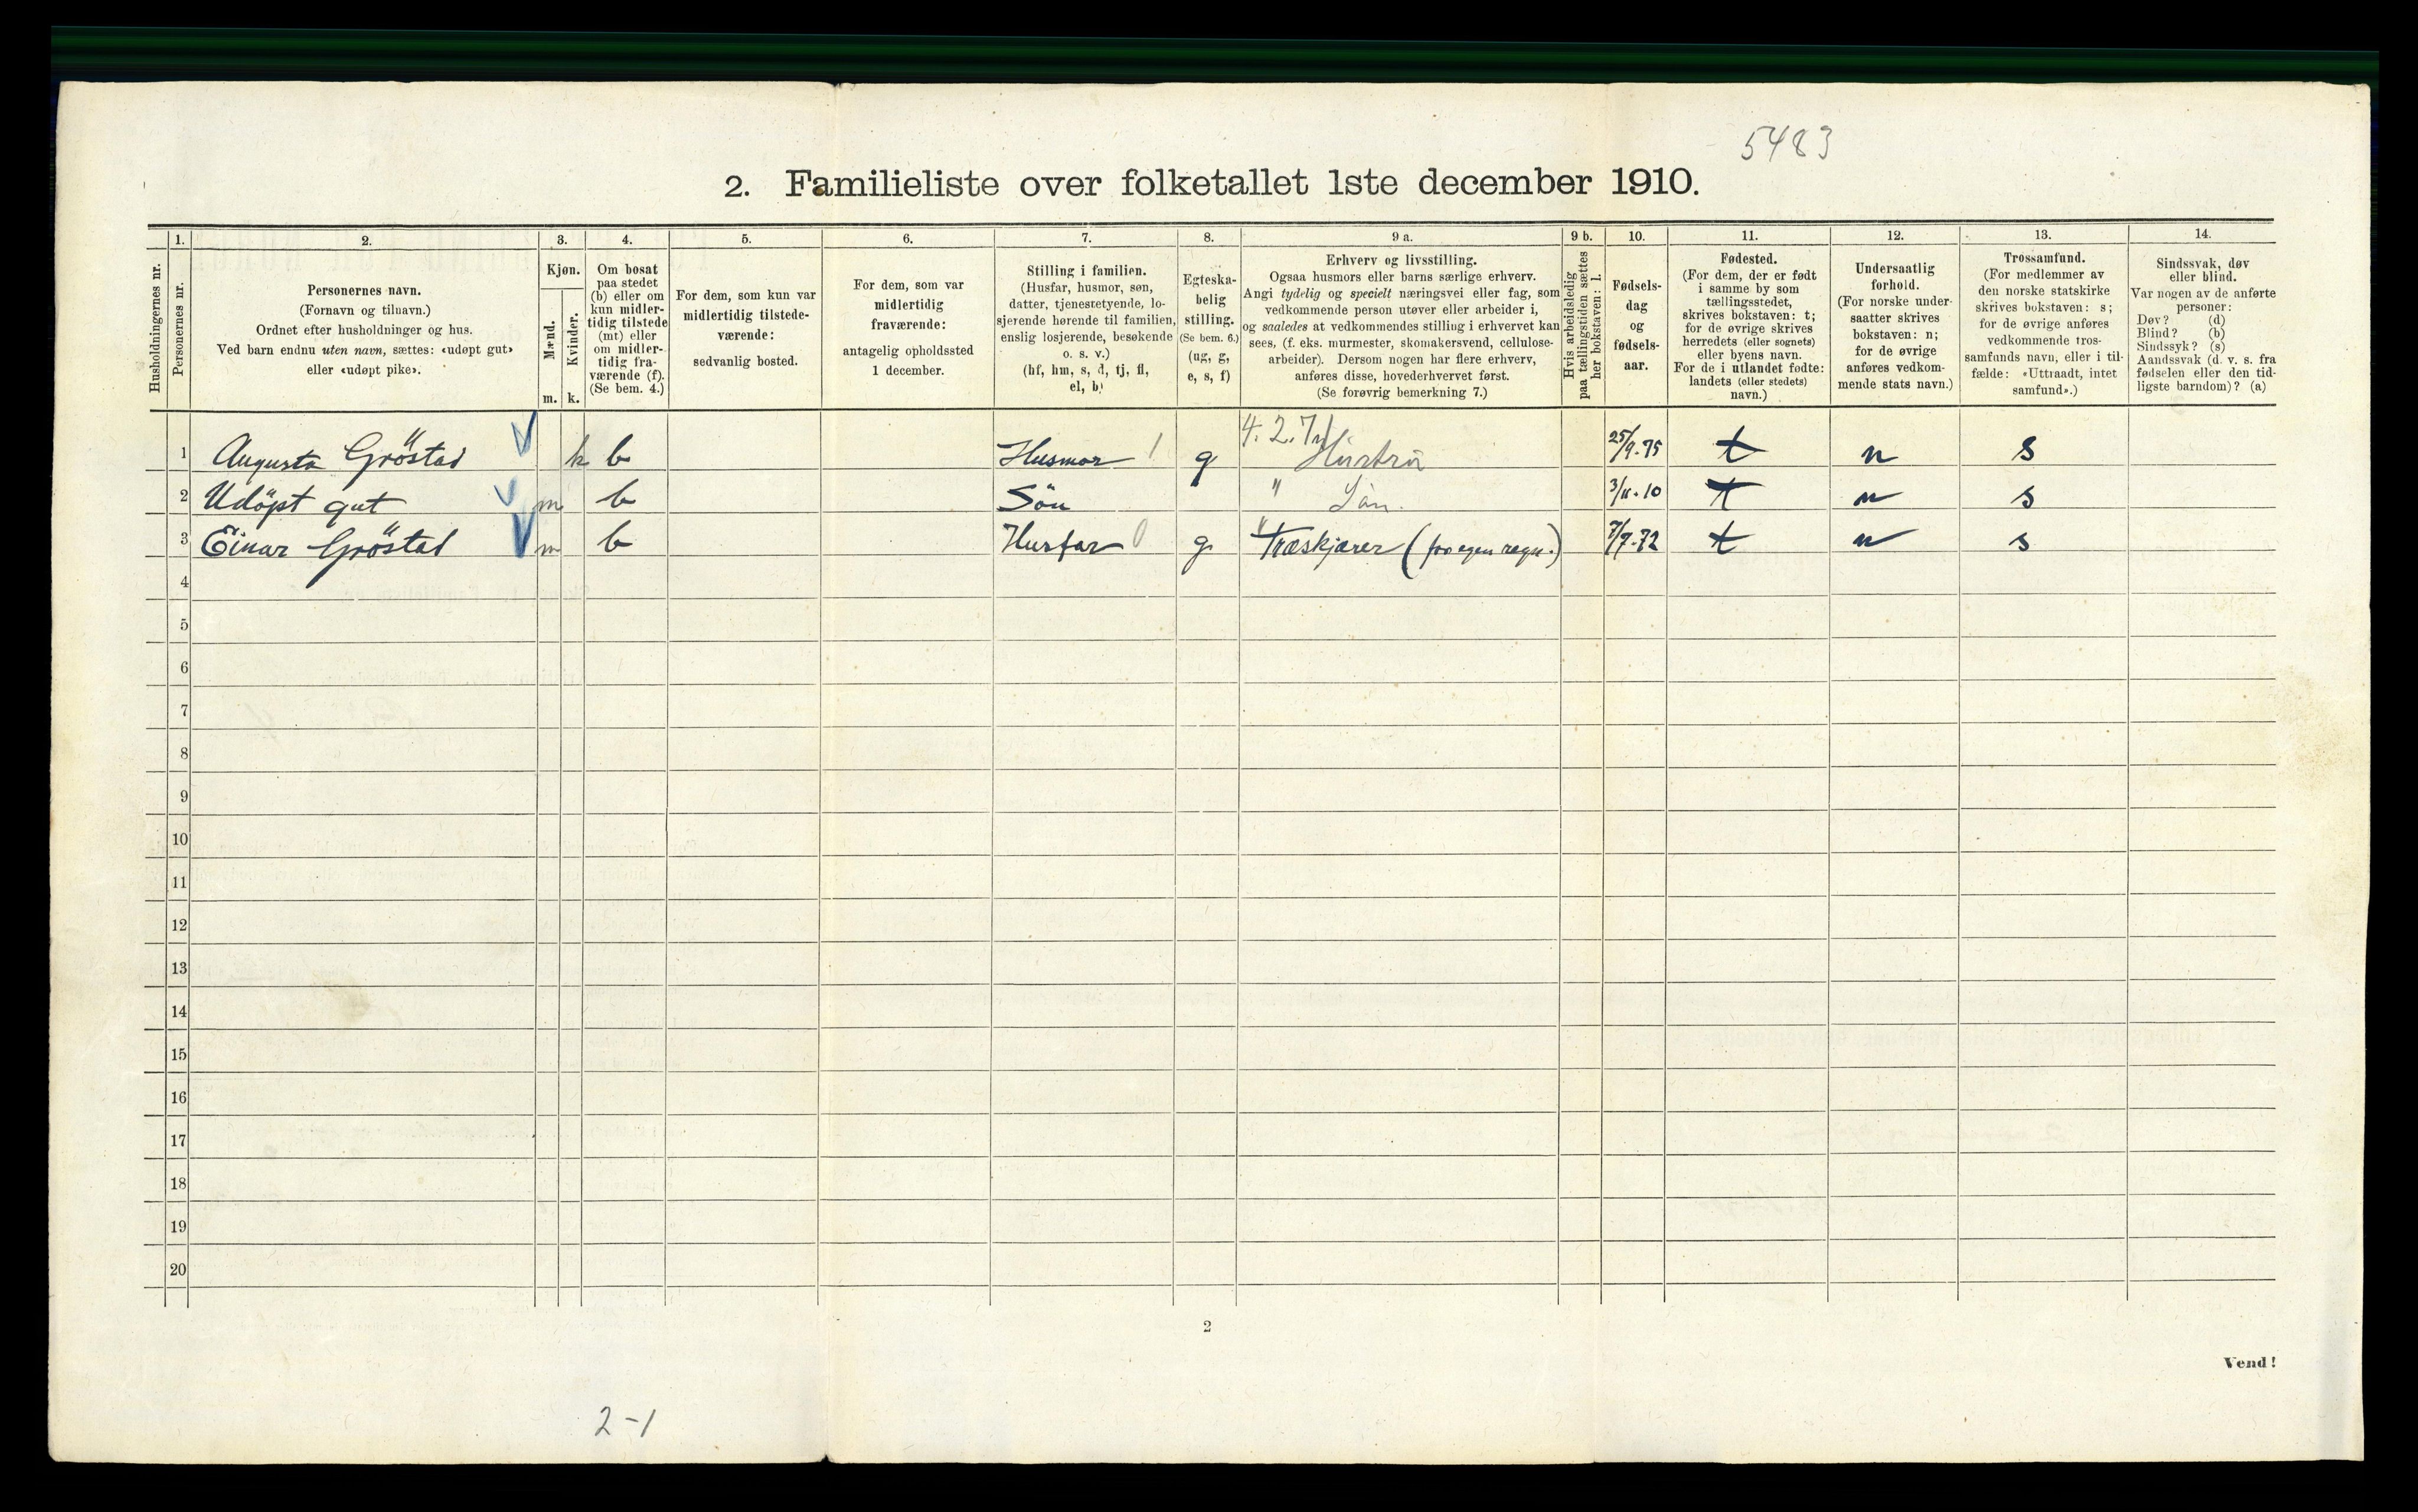 5483
2. Familieliste over folketallet 1ste december 1910.
Husholdningernes nr.
1.
Personernes nr.
2.
Personernes navn.
(Fornavn og tilnavn.)
Ordnet efter husholdninger og hus.
Ved barn endnu uten navn, sættes: «udøpt gut»
eller «udøpt pike».
3.
Kjøn.
Mænd.
m.
Kvinder.
k.
4.
Om bosat
paa stedet
(b) eller om
kun midler-
tidig tilstede
(mt) eller
om midler-
tidig fra-
værende (f).
(Se bem. 4.)
5.
For dem, som kun var
midlertidig tilstede-
værende:
sedvanlig bosted.
6.
For dem, som var
midlertidig
fraværende:
antagelig opholdssted
1 december.
7.
Stilling i familien.
(Husfar, husmor, søn,
datter, tjenestetyende, lo-
sjerende hørende til familien,
enslig losjerende, besøkende
o. s. v.)
(hf, hm, s, d, tj, fl,
el, b)
8.
Egteska-
belig
stilling.
(Se bem. 6.)
(ug, g,
e, s, f)
9 a.
Erhverv og livsstilling.
Ogsaa husmors eller barns særlige erhverv.
Angi tydelig og specielt næringsvei eller fag, som
vedkommende person utøver eller arbeider i,
og saaledes at vedkommendes stilling i erhvervet kan
sees, (f. eks. murmester, skomakersvend, cellulose-
arbeider). Dersom nogen har flere erhverv,
anføres disse, hovederhvervet først.
(Se forøvrig bemerkning 7.)
9 b.
Hvis arbeidsledig
paa tællingstiden sættes
her bokstaven: l.
10.
Fødsels-
dag
og
fødsels-
aar.
11.
Fødested.
(For dem, der er født
i samme by som
tællingsstedet,
skrives bokstaven: t;
for de øvrige skrives
herredets (eller sognets)
eller byens navn.
For de i utlandet fødte:
landets (eller stedets)
navn.)
12.
Undersaatlig
forhold.
(For norske under-
saatter skrives
bokstaven: n;
for de øvrige
anføres vedkom-
mende stats navn.)
13.
Trossamfund.
(For medlemmer av
den norske statskirke
skrives bokstaven: s;
for de øvrige anføres
vedkommende tros-
samfunds navn, eller i til-
fælde: «Uttraadt, intet
samfund».)
14.
Sindssvak, døv
eller blind.
Var nogen av de anførte
personer:
Døv? (d)
Blind? (b)
Sindssyk? (s)
Aandssvak (d. v. s. fra
fødselen eller den tid-
ligste barndom)? (a)
1 Augusta Gröstad k b Husmor 1 g Hustru 25/9-75 t n s
2 Udöpt gut m b Sön " Sön. 3/11-10 t n s
3 Einar Gröstad m b Husfar 0 g " Træskjærer (for egen regn.) 7/7-72 t n s
4
5
6
7
8
9
10
11
12
13
14
15
16
17
18
19
20
2
Vend!
2-1